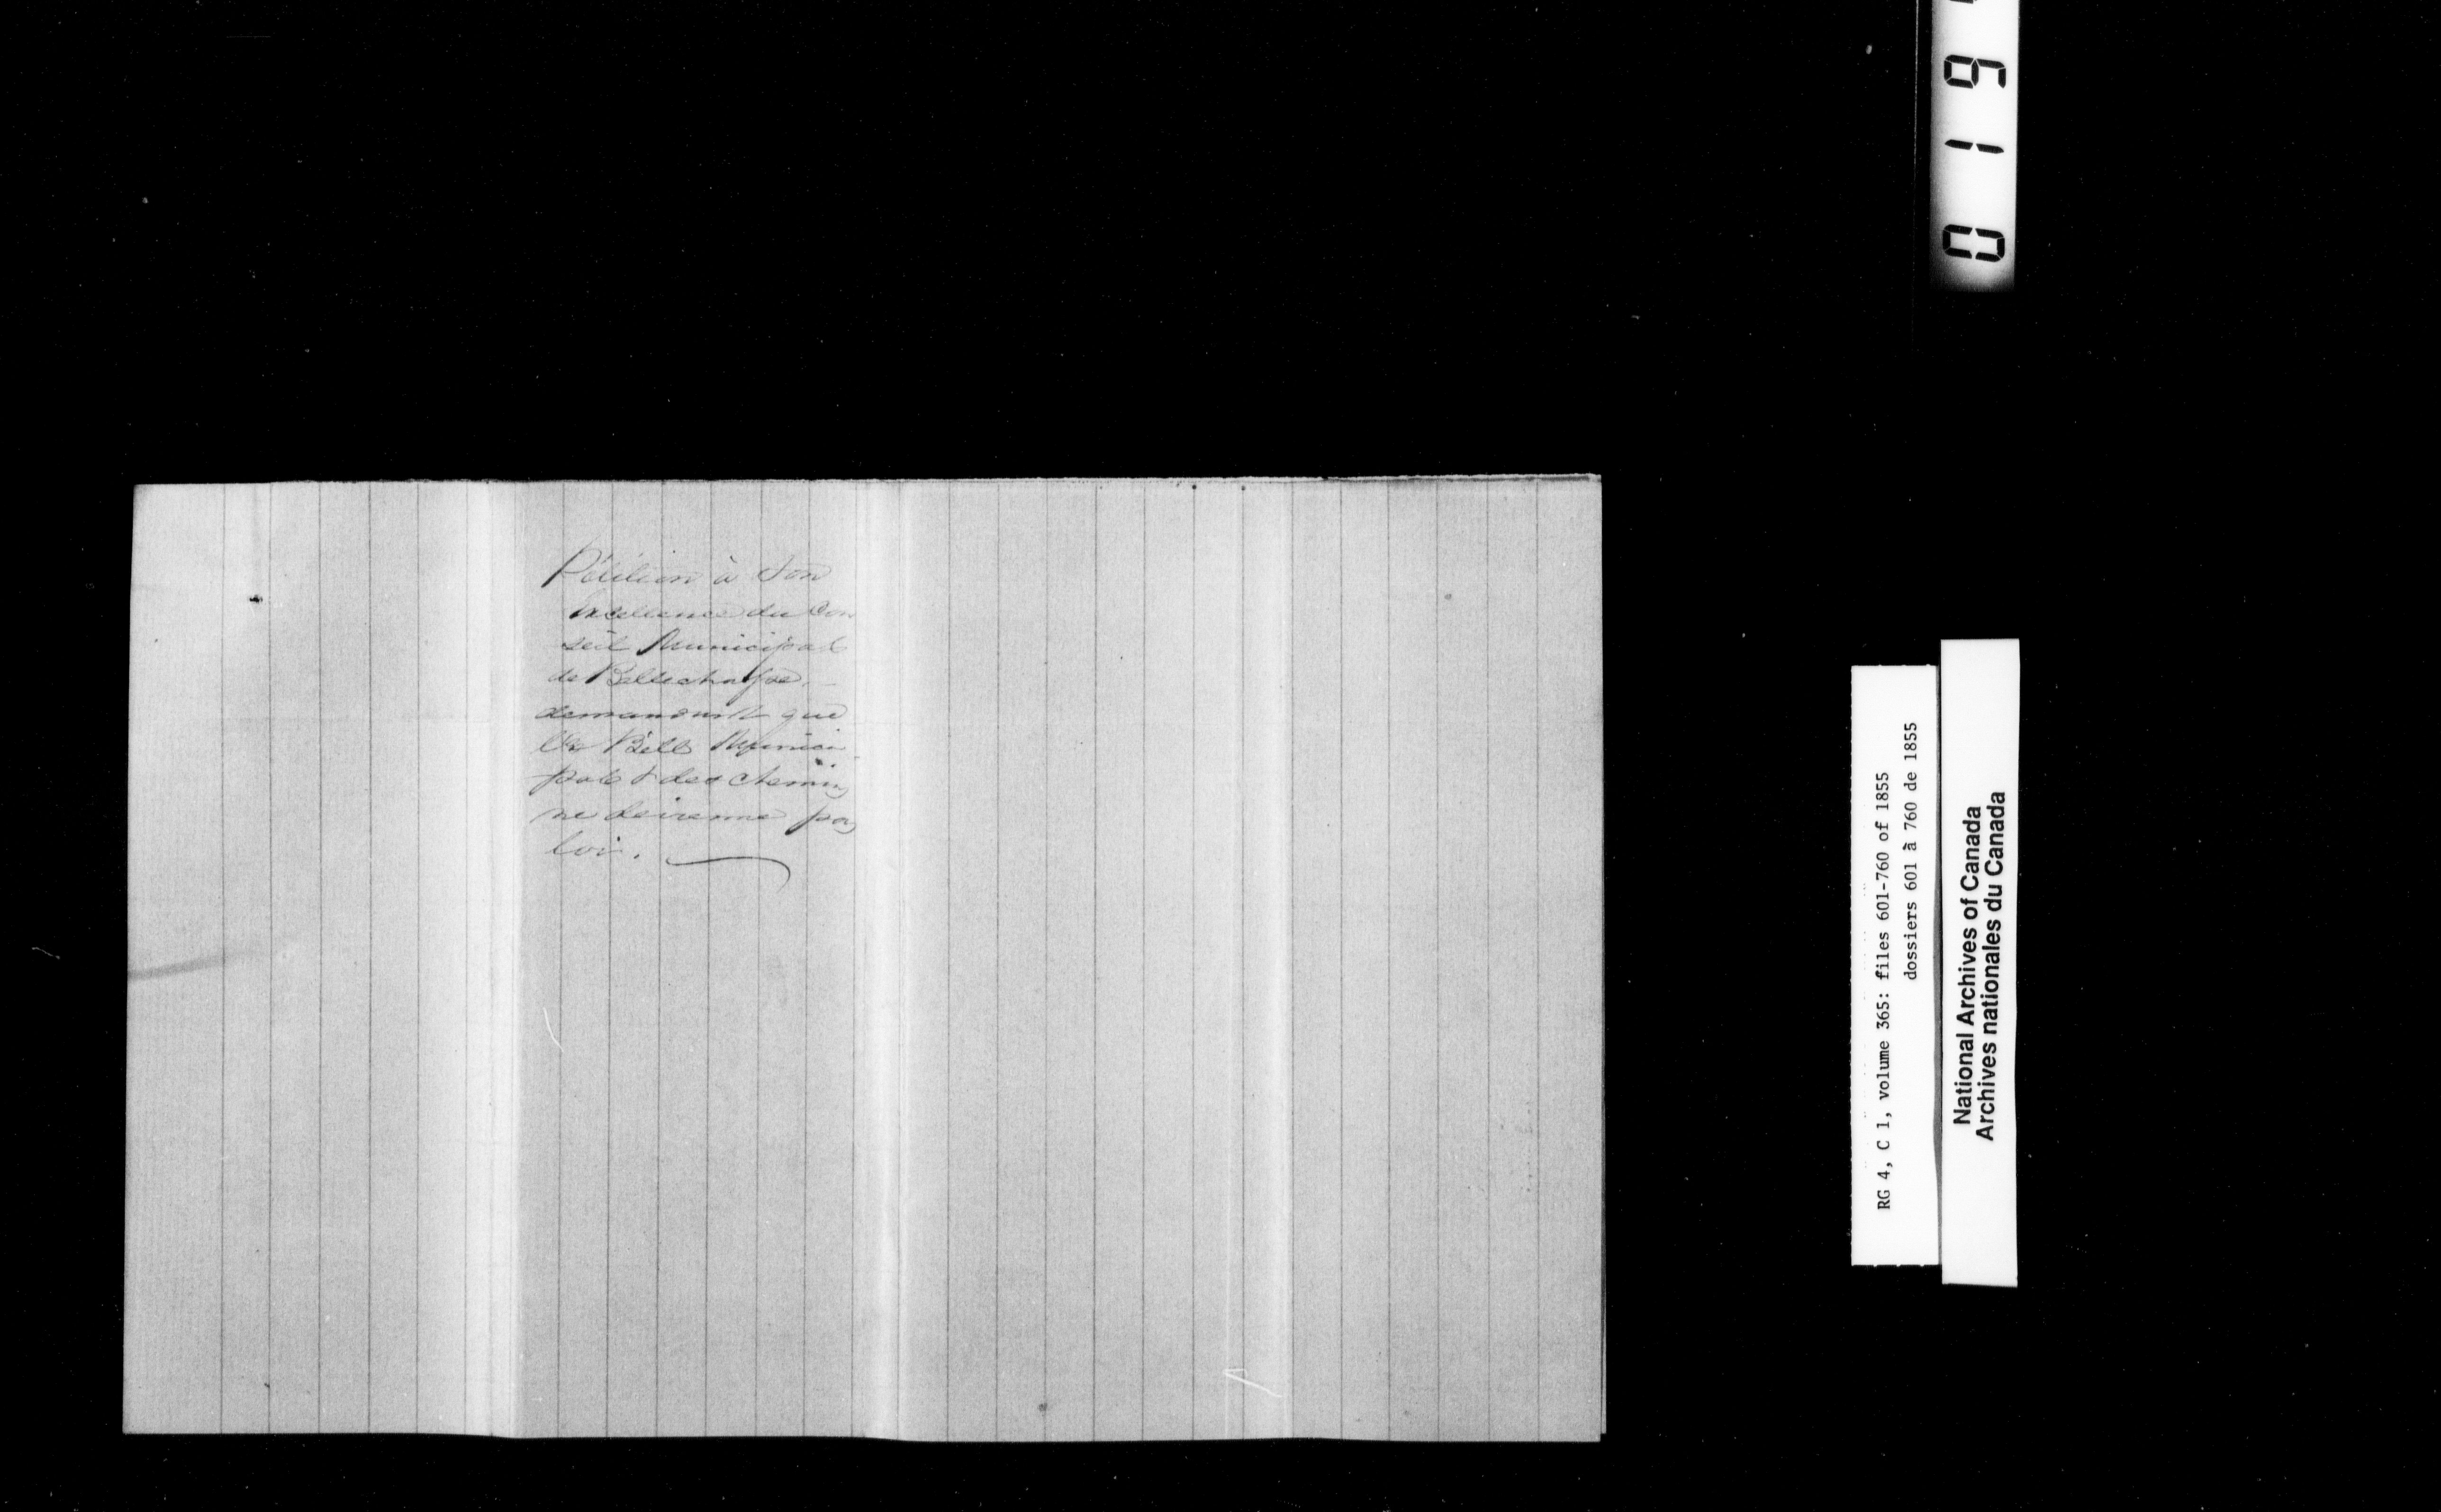 Pétition à Son
Excellence du Con
seil Municipal
de Bellechasse,
demandant que
les Bills Munici
pale & des chemins
ne devienne pas
loi.
RG 4, C 1, volume 365: files 601-760 of 1855
dossiers 601 à 760 de 1855
National Archives of Canada
Archives nationales du Canada
0 1 9